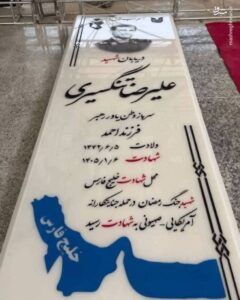 دریابان شهید
علیرضا تنگسیری
سرباز وطن و یاور رهبر
فرزند احمد
ولادت ۱۳۴۲/۶/۵
شهادت ۱۴۰۵/۱/۶
محل شهادت خلیج فارس
شهید جنگ رمضان در حمله جنایتکارانه
آمریکایی-صهیونی به شهادت رسید
خلیج فارس